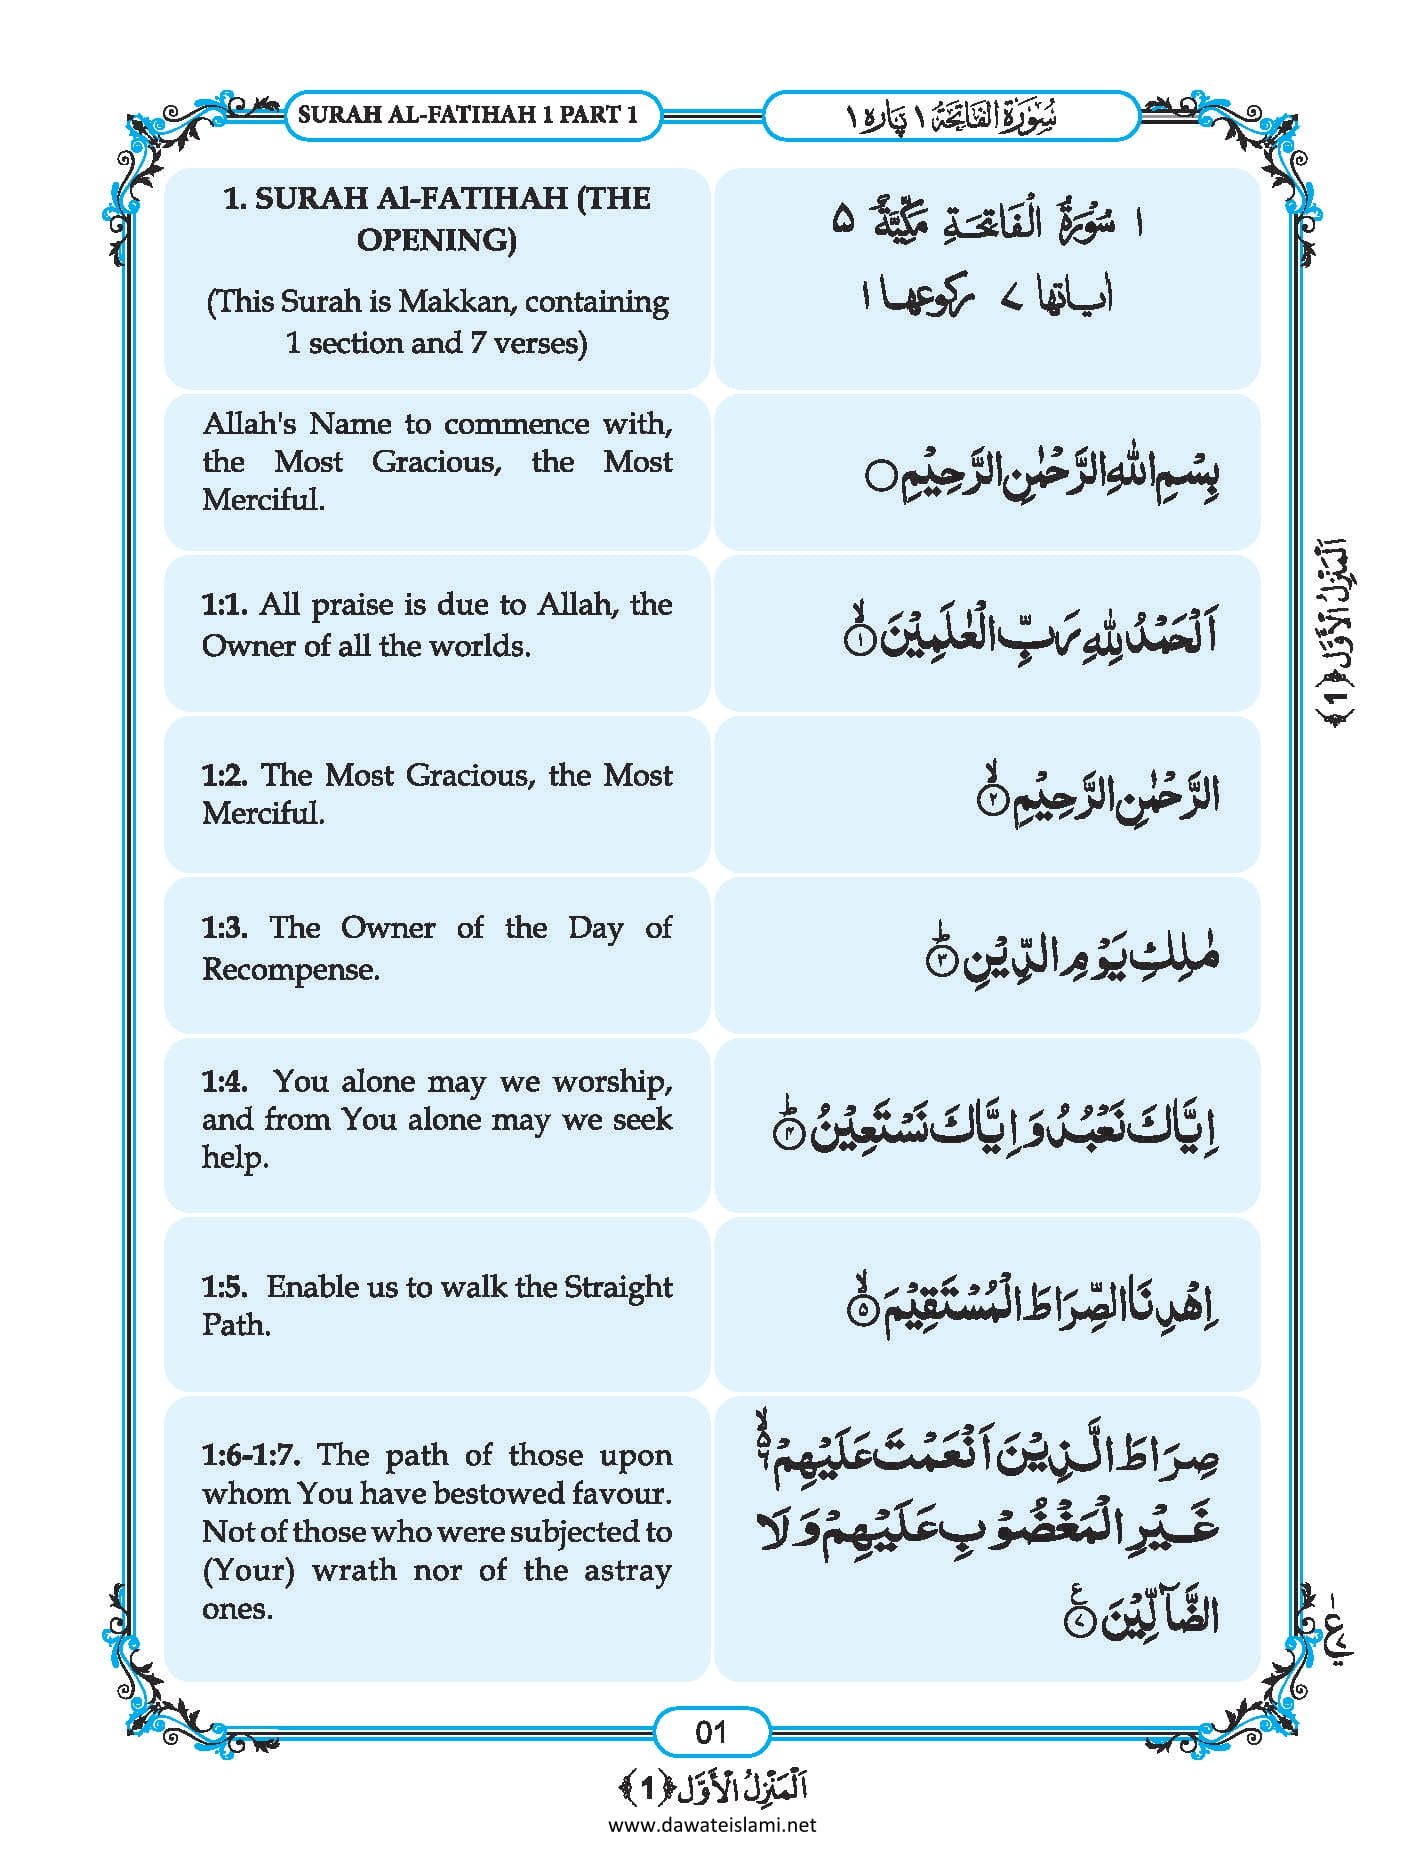 SURAH AL-FATIHAH 1 PART 1
سُوْرَةُ الْفَاتِحَة ١ پَارہ ١
1. SURAH Al-FATIHAH (THE
OPENING)
(This Surah is Makkan, containing
1 section and 7 verses)
١ سُوْرَةُ الْفَاتِحَةِ مَكِّيَّةٌ ٥
اٰیاتها ٧ ركوعها ١
Allah's Name to commence with,
the Most Gracious, the Most
Merciful.
بِسْمِ اللّٰهِ الرَّحْمٰنِ الرَّحِيْمِ ○
1:1. All praise is due to Allah, the
Owner of all the worlds.
اَلْحَمْدُ لِلّٰهِ رَبِّ الْعٰلَمِيْنَ ۙ﴿١﴾
1:2. The Most Gracious, the Most
Merciful.
الرَّحْمٰنِ الرَّحِيْمِ ۙ﴿٢﴾
1:3. The Owner of the Day of
Recompense.
مٰلِكِ يَوْمِ الدِّيْنِ ؕ﴿٣﴾
1:4. You alone may we worship,
and from You alone may we seek
help.
اِيَّاكَ نَعْبُدُ وَ اِيَّاكَ نَسْتَعِيْنُ ؕ﴿۴﴾
1:5. Enable us to walk the Straight
Path.
اِهْدِنَا الصِّرَاطَ الْمُسْتَقِيْمَ ۙ﴿۵﴾
1:6-1:7. The path of those upon
whom You have bestowed favour.
Not of those who were subjected to
(Your) wrath nor of the astray
ones.
صِرَاطَ الَّذِيْنَ اَنْعَمْتَ عَلَيْهِمْ ۙ۬ۦ
غَيْرِ الْمَغْضُوْبِ عَلَيْهِمْ وَ لَا
الضَّآلِّيْنَ ﴿٧﴾ ع
اَلْمَنْزِلُ الْاَوَّل ﴿1﴾
01
اَلْمَنْزِلُ الْاَوَّل ﴿1﴾
www.dawateislami.net